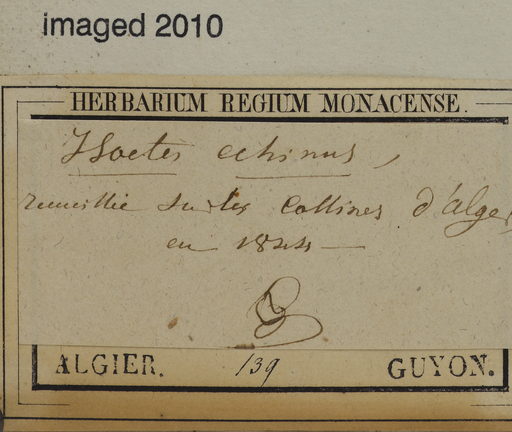 imaged 2010
HERBARIUM REGIUM MONACENSE.
Isoetes echinus,
recueillie sur les collines d'alger
en 1844
ALGIER. 139 GUYON.